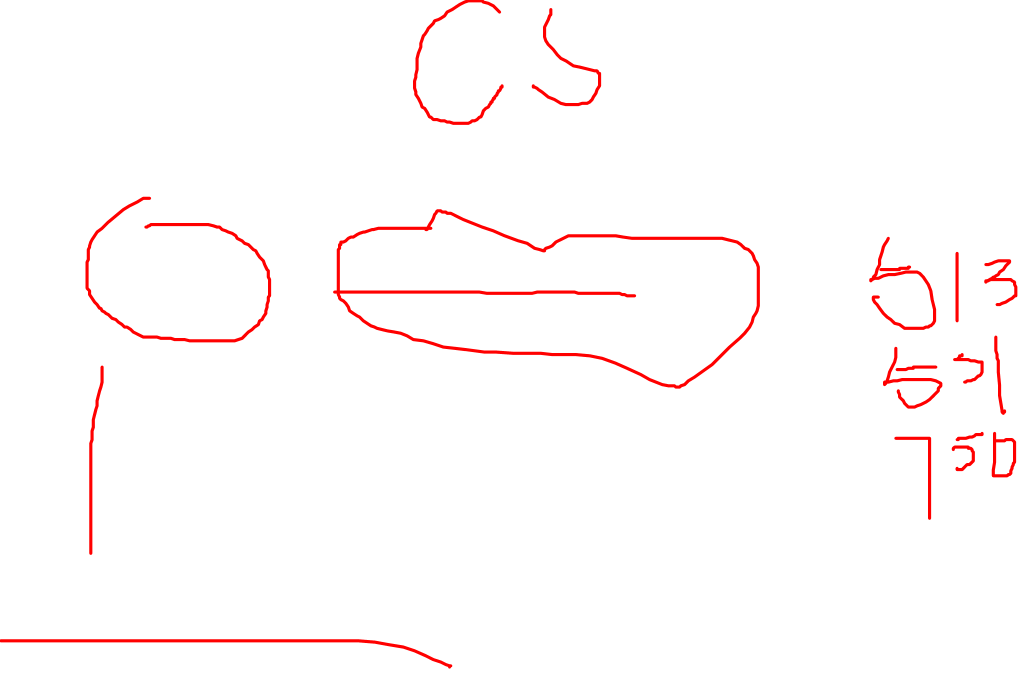 CS
513
571
750